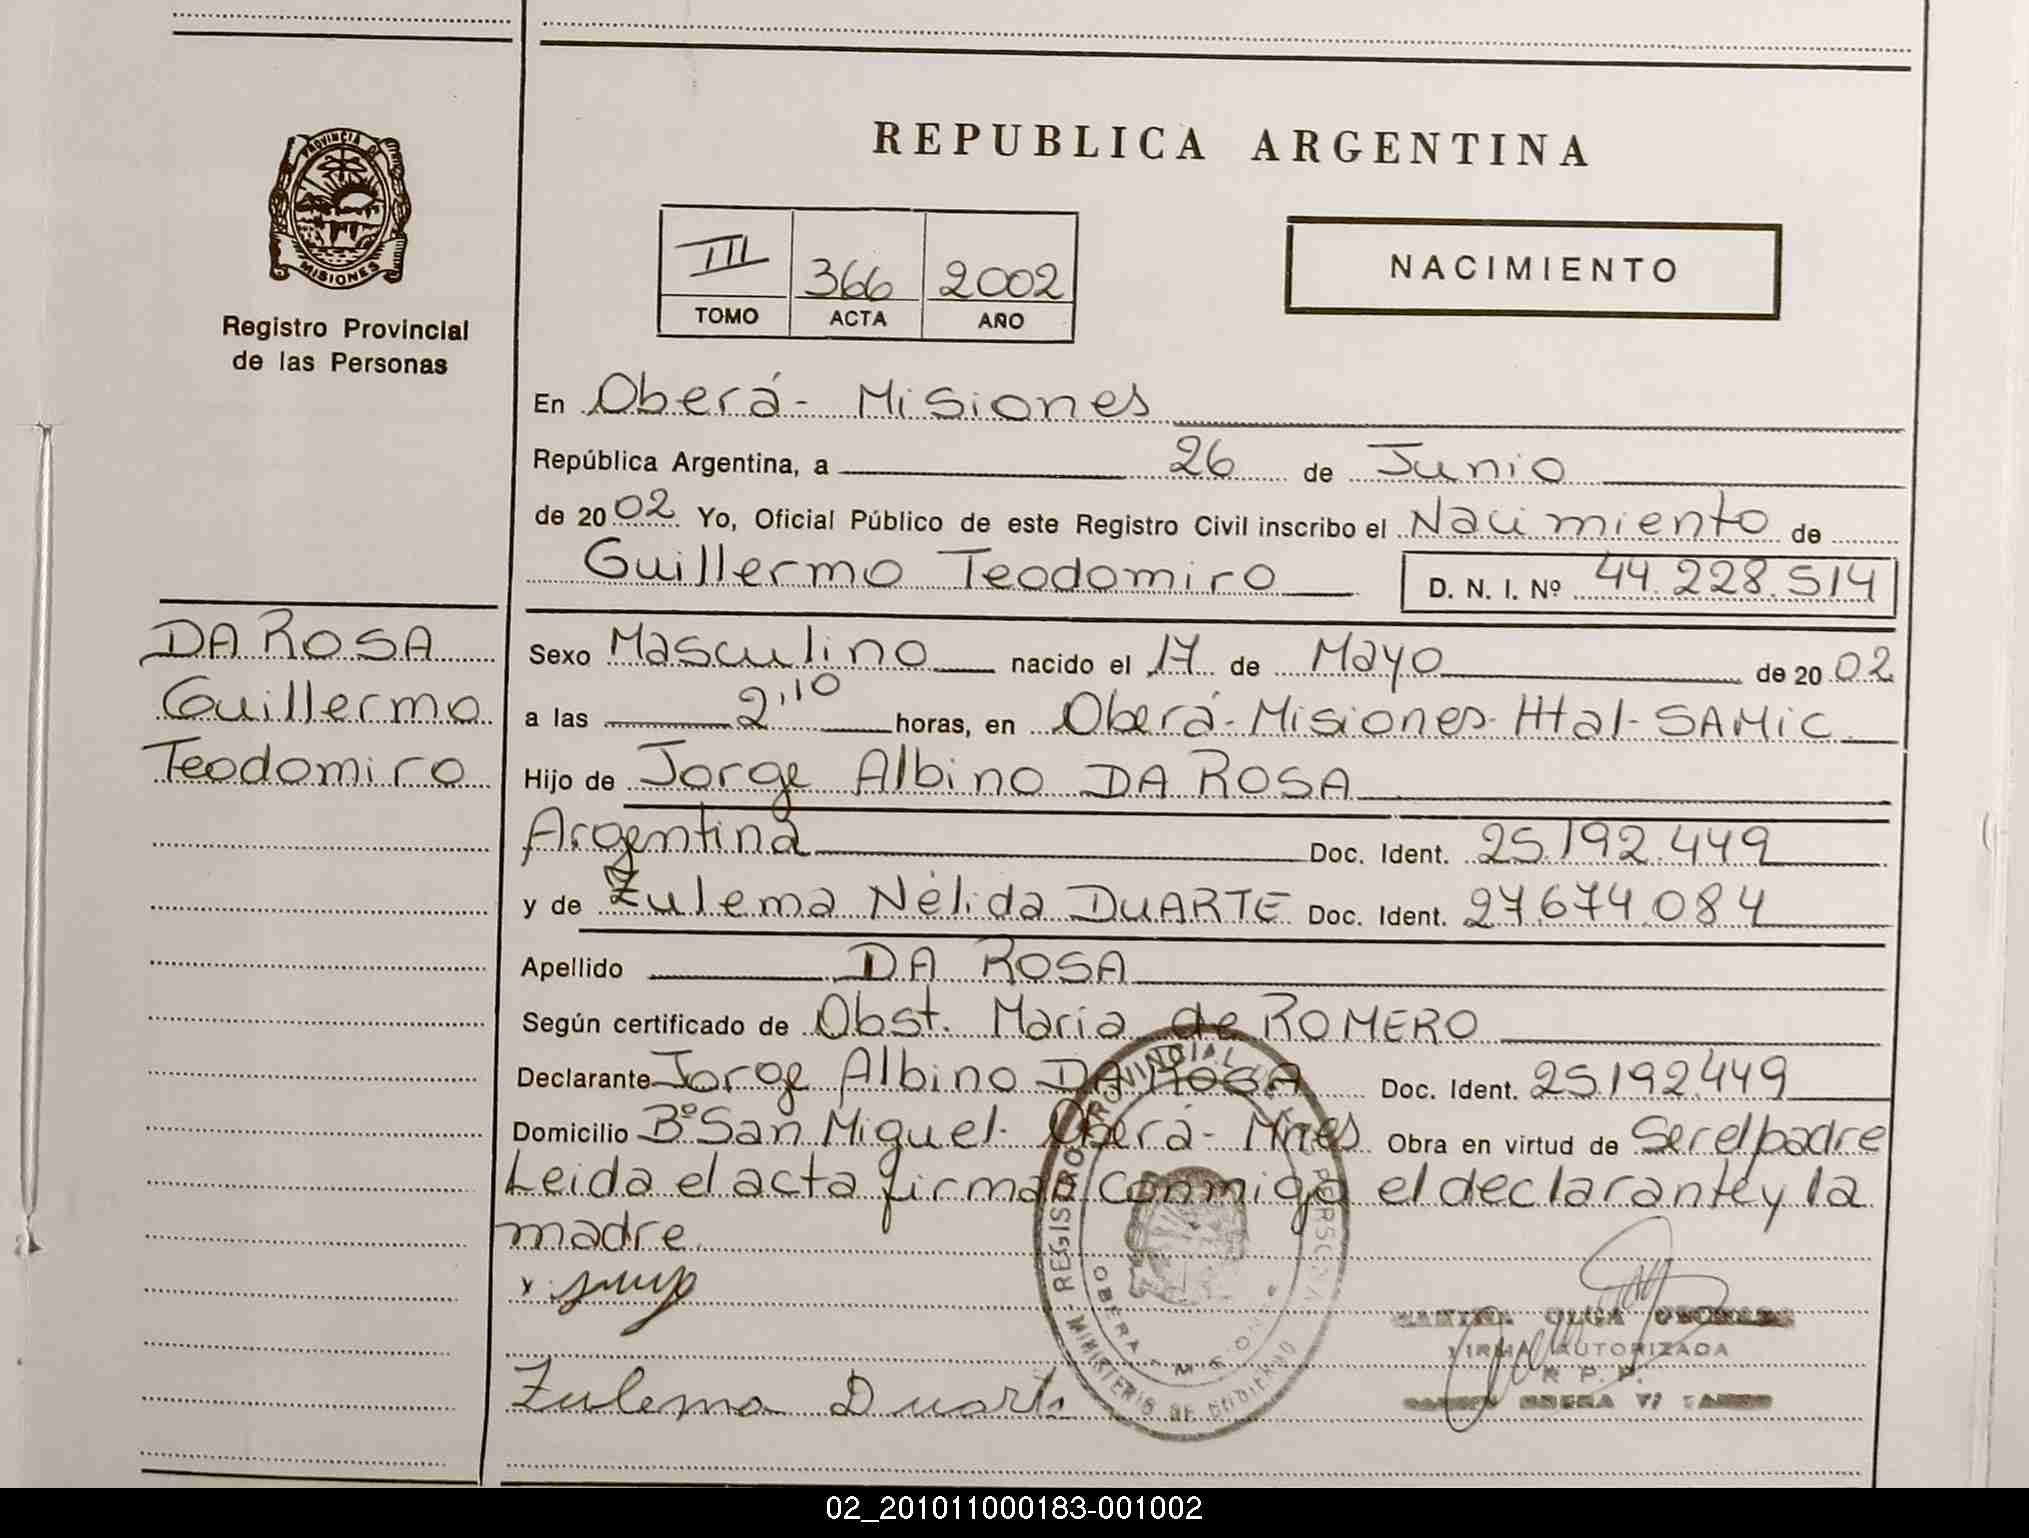 PROVINCIA DE
MISIONES
Registro Provincial
de las Personas
REPUBLICA ARGENTINA
III 366 2002
TOMO ACTA AÑO
NACIMIENTO
En Oberá - Misiones
República Argentina, a 26 de Junio
de 2002 Yo, Oficial Público de este Registro Civil inscribo el Nacimiento de
Guillermo Teodomiro D. N. I. Nº 44.228.514
DA ROSA
Guillermo
Teodomiro
Sexo Masculino nacido el 17 de Mayo de 2002
a las 2,10 horas, en Oberá - Misiones - Htal - SAMIC
Hijo de Jorge Albino DA ROSA
Argentina Doc. Ident. 25.192.449
y de Zulema Nélida DUARTE Doc. Ident. 27.674.084
Apellido DA ROSA
Según certificado de Obst. María de ROMERO
Declarante Jorge Albino DA ROSA Doc. Ident. 25.192.449
Domicilio Bº San Miguel - Oberá - Mnes Obra en virtud de Ser el padre
Leida el acta firman conmigo el declarante y la
madre.
REGISTRO PROVINCIAL DE
OBERA - MISIONES
MINISTERIO DE GOBIERNO
OLGA
FIRMA AUTORIZADA
R. P. P.
Zulema Duarte
02_201011000183-001002